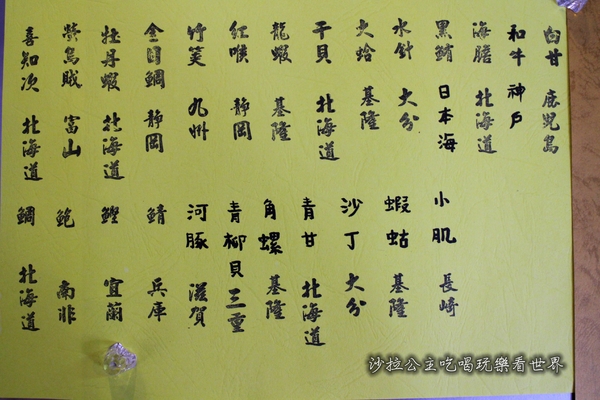 白甘 鹿児島
和牛 神戶
海膽 北海道
黑鮪 日本海
水針 大分
大蛤 基隆
干貝 北海道
龍蝦 基隆
紅喉 靜岡
竹筴 九州
金目鯛 靜岡
牡丹蝦 北海道
螢烏賊 富山
喜知次 北海道
小肌 長崎
蝦蛄 基隆
沙丁 大分
青甘 北海道
角螺 基隆
青柳貝 三重
河豚 滋賀
鯖 兵庫
鰹 宜蘭
鮑 南非
鯛 北海道
沙拉公主吃喝玩樂看世界